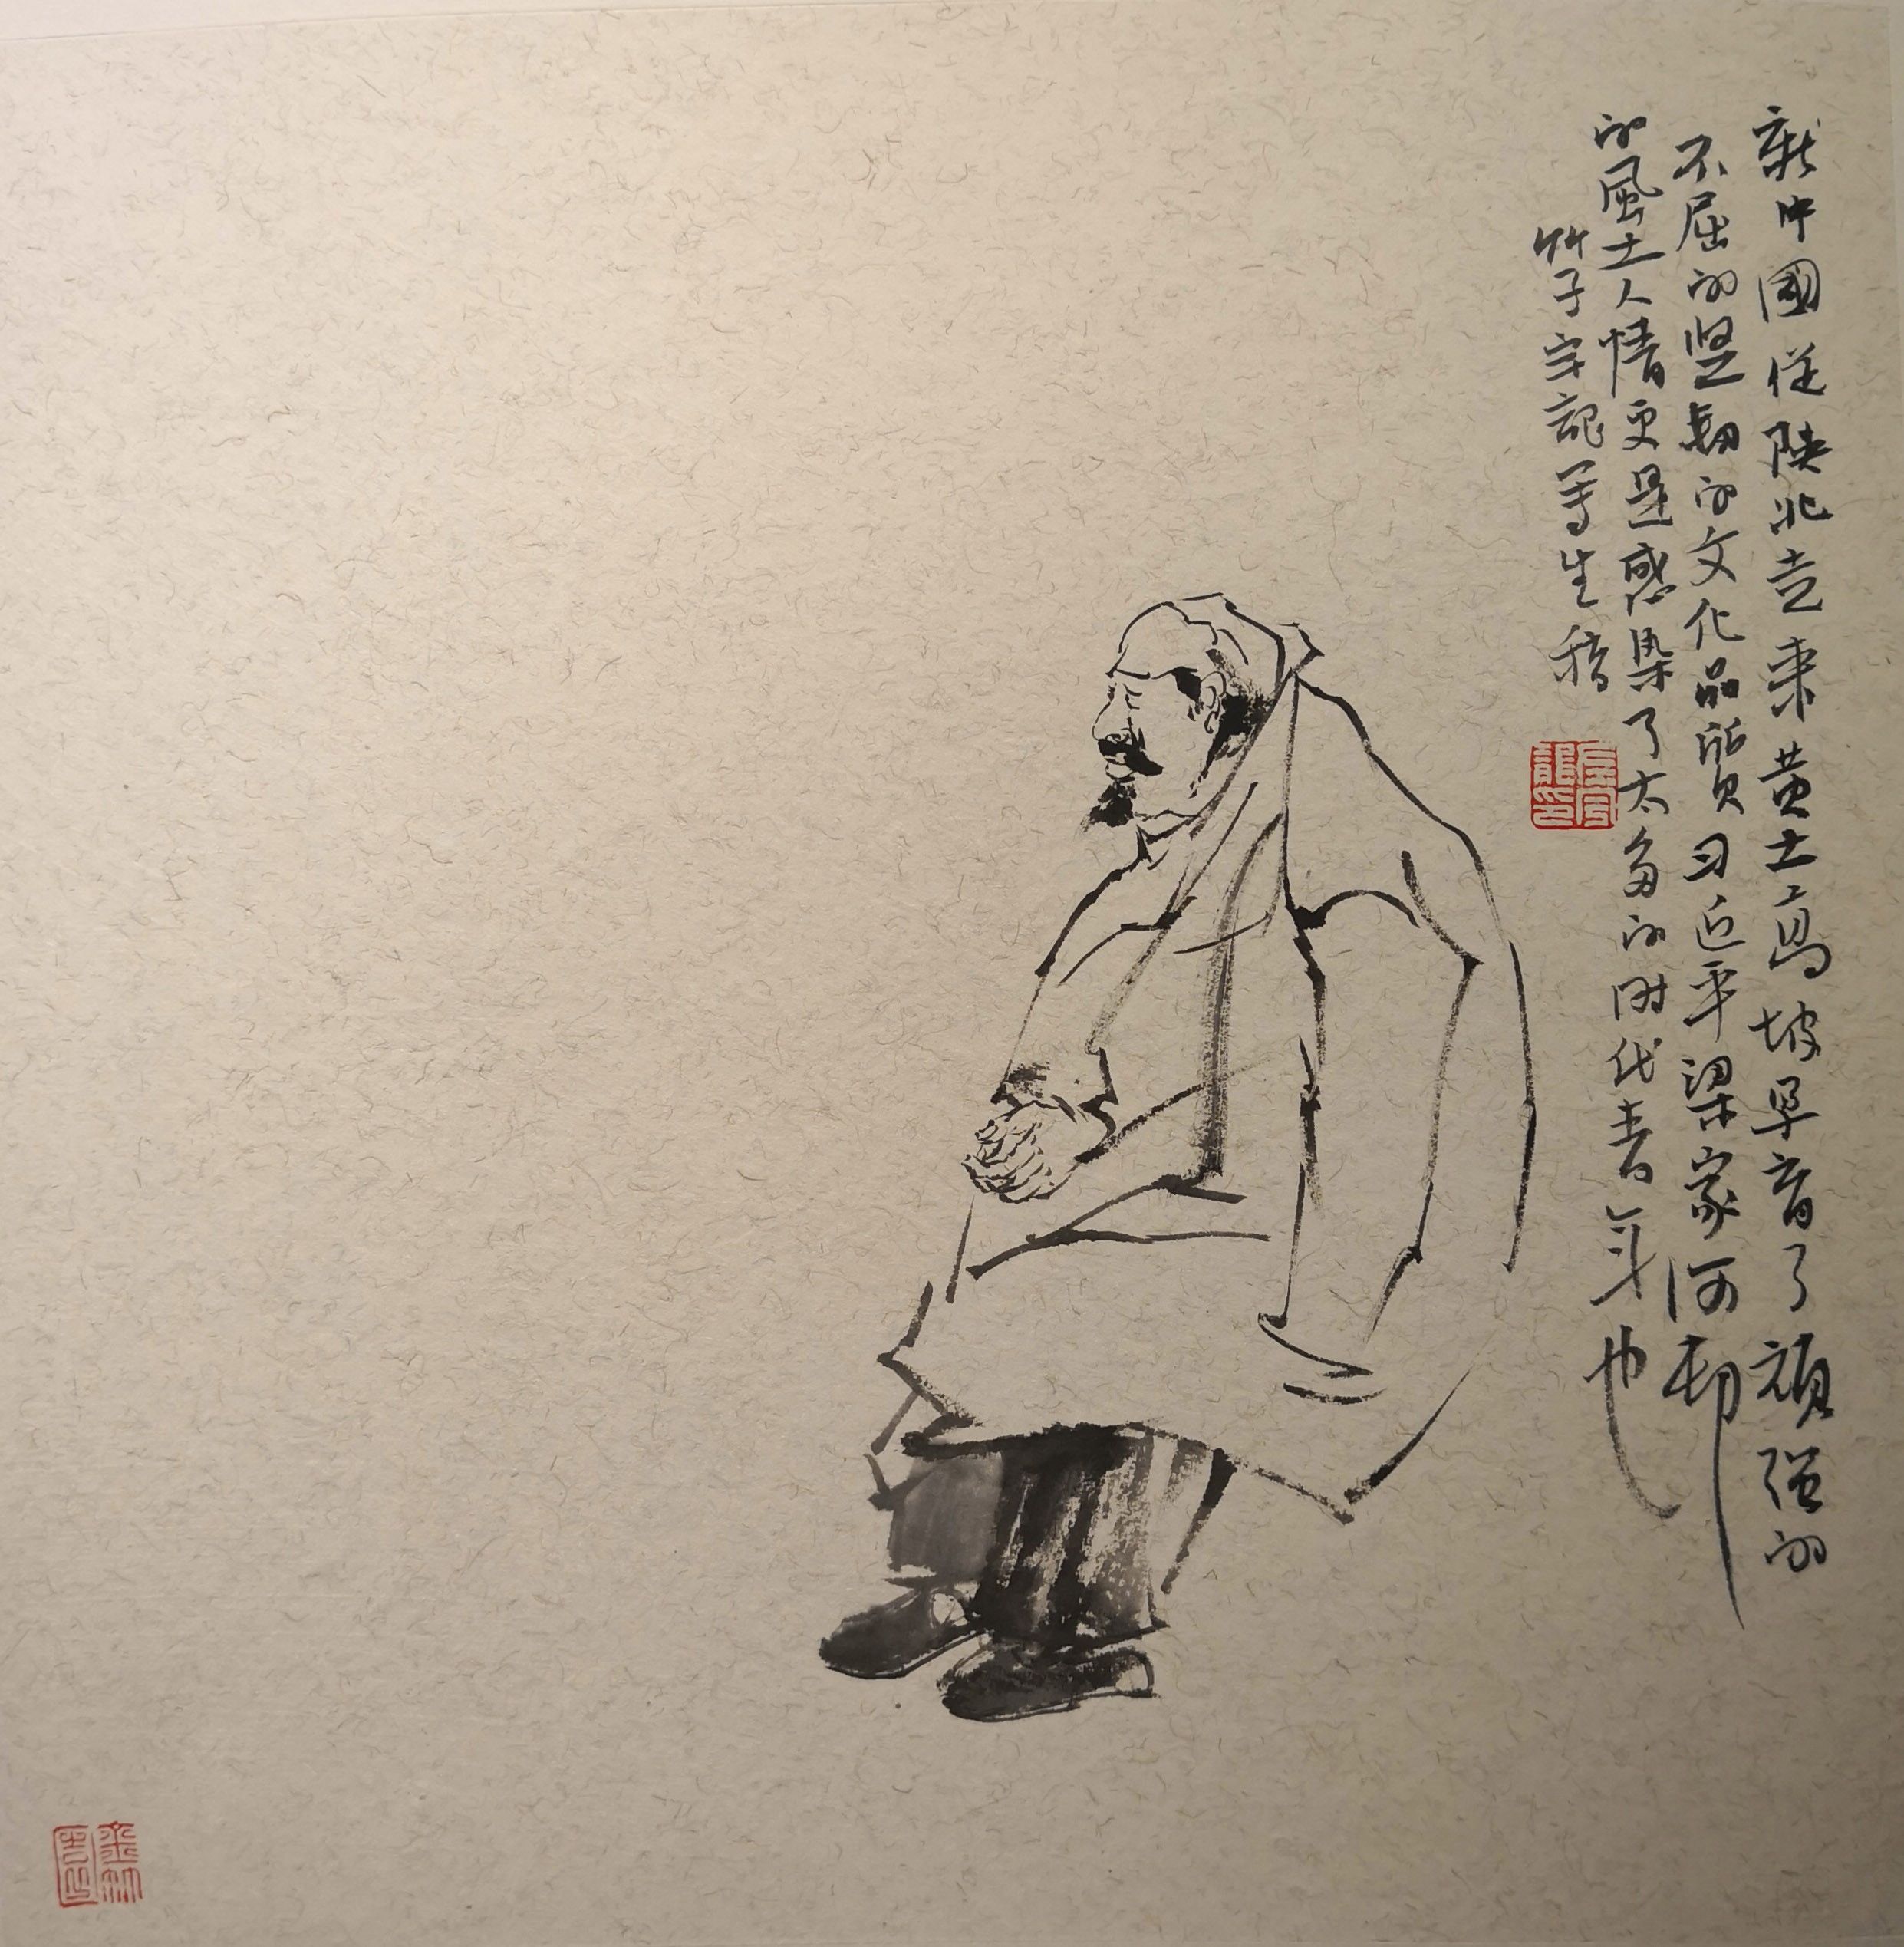 新中國從陕北走来黄土高坡阜育了頑强的
不屈的坚韧的文化品質习近平梁家河邨
的風土人情更是感染了太多的时代青年也
竹子字記写生稿